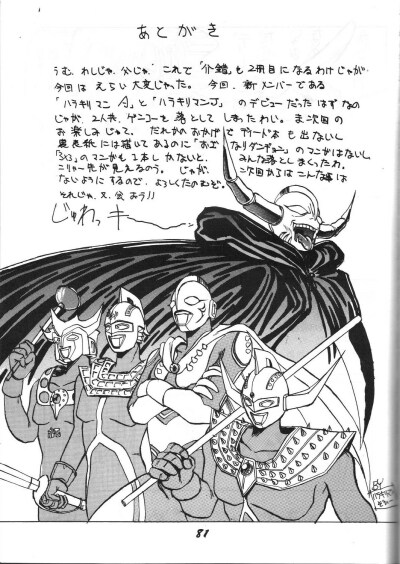 あとがき
うむ、わしじゃ、父じゃ、これで「介錯」も2冊目になるわけじゃが、
今回はえらい大変じゃった。今回、新メンバーである
「ハラキリマンA」と「ハラキリマンJ」のデビューだったはずなの
じゃが、2人共、ゲンコーを落としてしまたわい。ま、次回の
お楽しみじゃて。だれかのおかげで も出ないし
裏表紙には描いてあるのに「 」のマンガはないし
のマンガも1本しかないと、みんな落としまくったわ。
ニリャー先が見えるのう。じゃが、二次回からはこんな事は
ないようにするので、よろしくたのむぞ。
それじゃ、又、会おう!!
じゅわっキー
81
BY